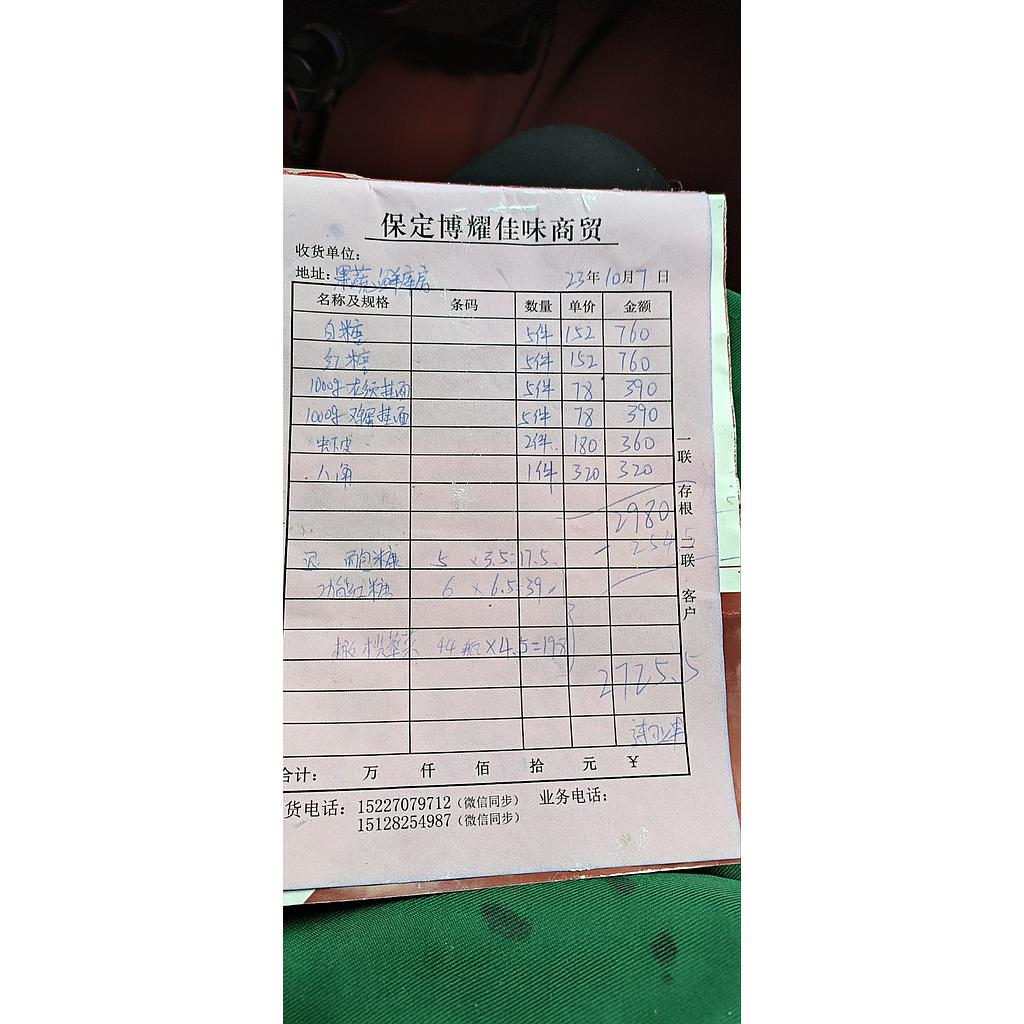 保定博耀佳味商贸
收货单位:
地址: 果蔬鲜 23年10月7日
名称及规格 条码 数量 单价 金额
白糖 5件 152 760
红糖 5件 152 760
1000g 挂面 5件 78 390
1000g 鸡蛋挂面 5件 78 390
虾皮 2件 180 360
八角 1件 320 320
2980
退 白糖 5 ×3.5=17.5 - 254.5
红糖 6 ×6.5=39
橄榄菜 44瓶×4.5=198
2725.5
合计: 万 仟 佰 拾 元 ¥
货电话: 15227079712(微信同步) 业务电话:
15128254987(微信同步)
一联 存根 二联 客户